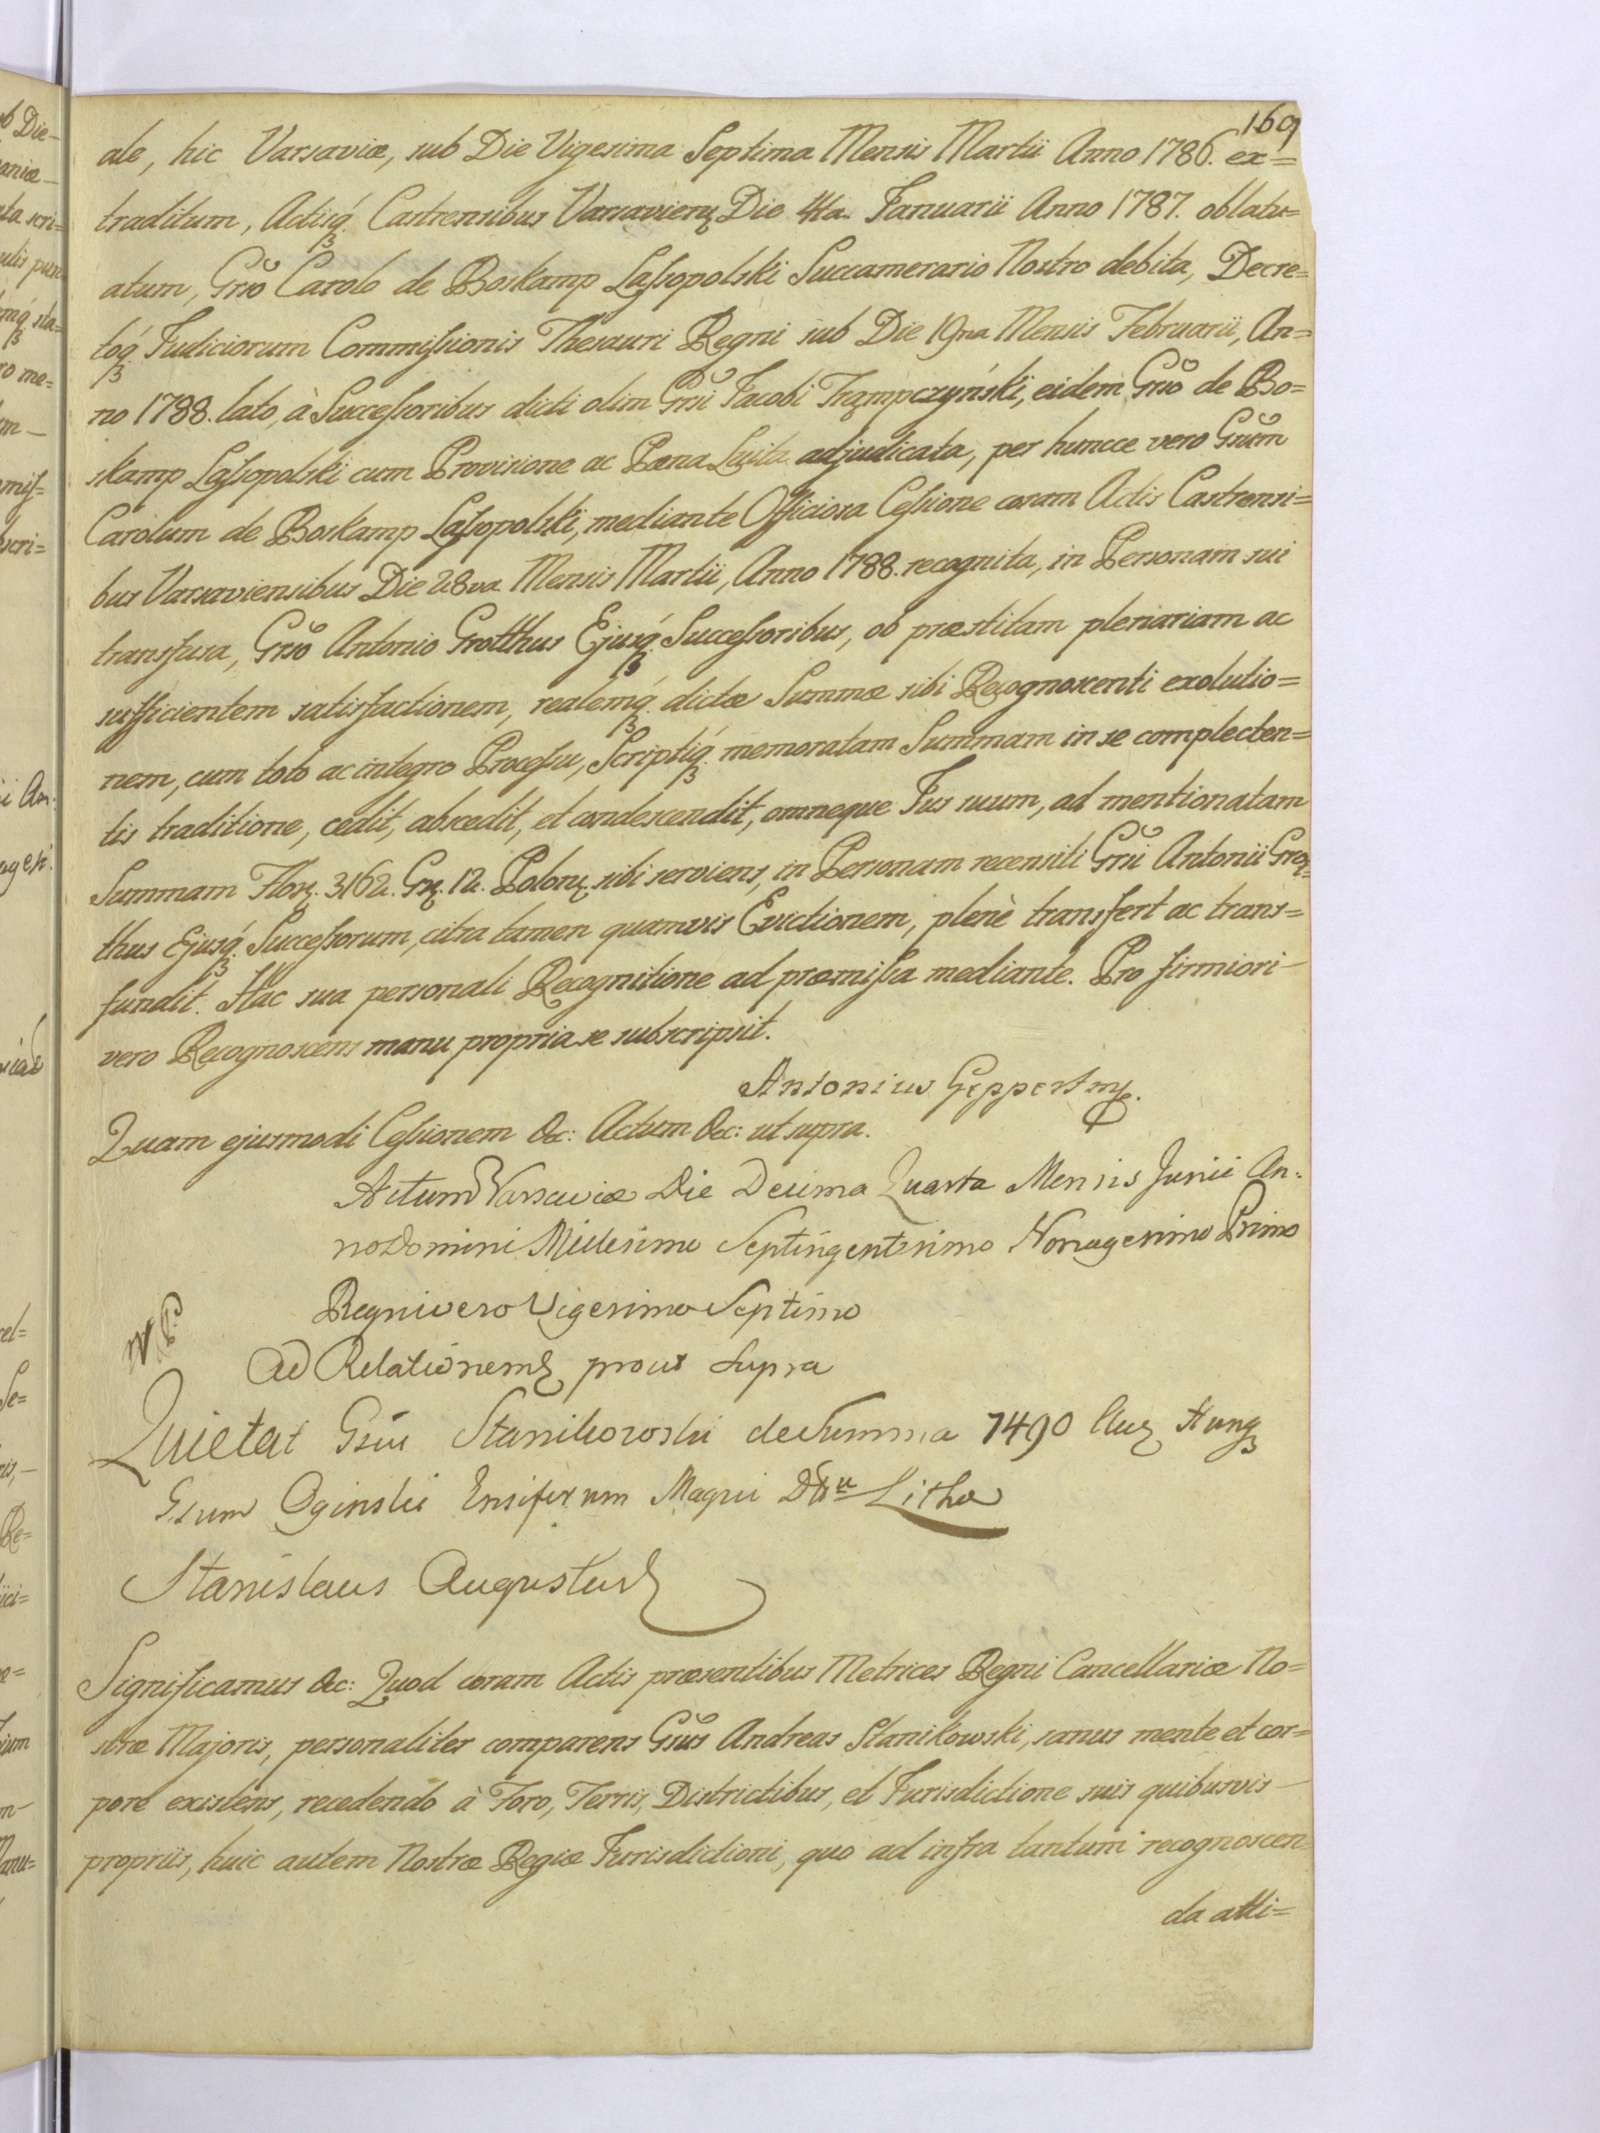 169
ale, hic Varsaviæ, sub Die Vigesima Septima Mensis Martii Anno 1786. ex=
traditum, Actisq́ꝫ Castrensibus Varsavienꝫ Die 4ta. Januarii Anno 1787. oblatu=
atum, Grso Carolo de Boskamp Lassopolski Succamerario Nostro debita, Decre=
toq́ꝫ Judiciorum Commissionis Thesauri Regni sub Die 19na Mensis Februarii, An=
no 1788. lato, à Successoribus dicti olim Grsi Jacobi Trąmpczyński, eidem Grso de Bo=
skamp Lassopolski cum Provisione ac Pœna Luita adjudicata, per huncce vero Grsum
Carolum de Boskamp Lassopolski, mediante Officiosa Cessione coram Actis Castrensi=
bus Varsaviensibus Die 28va Mensis Martii, Anno 1788. recognita, in Personam sui
transfusa, Grso Antonio Grotthus Ejusq́ꝫ Successoribus, ob præstitam plenariam ac
sufficientem satisfactionem, realemq́ꝫ dictæ Summæ sibi Recognoscenti exolutio=
nem, cum toto ac integro Processu, Scriptiq́ꝫ memoratam Summam in se complecten=
tis traditione, cedit, abscedit, et condescendit, omneque Jus suum, ad mentionatam
Summam Florꝫ. 3162. Grꝫ. 12. Polonꝫ. sibi serviens, in Personam recensiti Grsi Antonii Grot=
thus Ejusq́ꝫ Successorum, citra tamen quamvis Evictionem, plenè transfert ac trans=
fundit. Hac sua personali Recognitione ad præmissa mediante. Pro firmiori
vero Recognoscens manu propria se subscripsit.
Antonius Geppert mp.
Quam ejusmodi Cessionem &c: Actum &c: ut supra.
Actum Varsaviæ Die Decima Quarta Mensis Junii An=
no Domini Millesimo Septingentesimo Nonagesimo Primo
Regni vero Vigesimo Septimo
Ad Relationem prout Supra
Quietat Gsus Stanikowski de Summa 7490 Aur Hung
Gsum Oginski Ensiferum Magni D Lithæ
Stanislaus Augustus
Significamus &c: Quod coram Actis præsentibus Metrices Regni Cancellariæ No=
stræ Majoris, personaliter comparens Gsus Andreas Stanikowski, sanus mente et cor=
pore existens, recedendo à Foro, Terris, Districtibus, et Jurisdictione suis quibusvis
propriis, huic autem Nostræ Regiæ Jurisdictioni, quo ad infra tantum recognoscen
da atti=